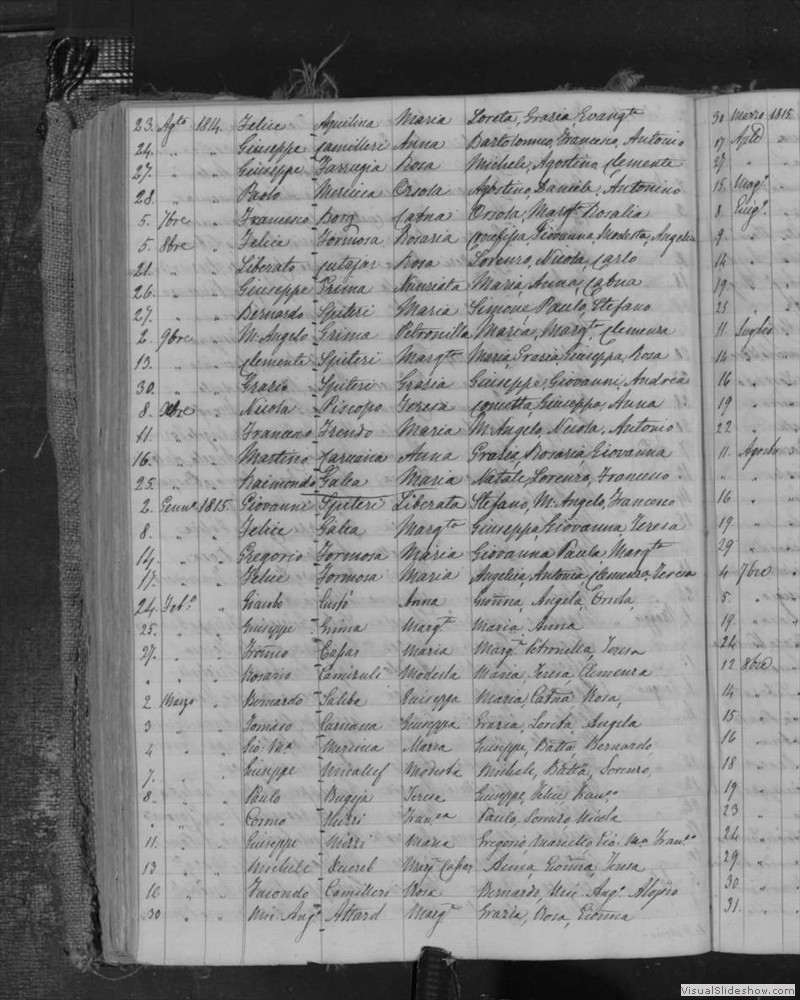 23. Agto 1814. Felice Aquilina Maria Loreta, Grazia Evangta
24. " " Giuseppe Camilleri Anna Bartolomeo, Francesco, Antonio
27. " " Giuseppe Farrugia Rosa Michele, Agostino, Clemente
28. " " Paolo Mercieca Orsola Agostino, Daniele, Antonino
5. 7bre " Francesco Borg Catna Orsola, Margta Rosalia
5. 8bre " Felice Formosa Rosaria Giovanna, Modesta, Angelica
21. " " Liberato Cutajar Rosa Lorenzo, Nicola, Carlo
26. " " Giuseppe Grima Nunziata Maria, Anna, Catna
27. " " Bernardo Spiteri Maria Simone Paulo, Stefano
2. 9bre " M. Angelo Grima Petronilla Maria, Margta, Clemenza
13. " " Clemente Spiteri Margta Maria Grazia, Giuseppa, Rosa
30. " " Grazio Spiteri Grazia Giuseppe, Giovanni, Andrea
8. Xbre " Nicola Piscopo Teresa Concetta, Giuseppa, Anna
11. " " Francesco Frendo Maria M. Angelo, Nicola, Antonio
16. " " Martino Caruana Anna Grazia, Rosaria, Giovanna
25. " " Raimondo Galea Maria Natale, Lorenzo, Francesco
2. Genno 1815. Giovanni Spiteri Liberata Stefano, M. Angelo, Francesco
8. " " Felice Galea Margta Giuseppa, Giovanna Teresa
14. " " Gregorio Formosa Maria Giovanna Paula Margta
17. " " Felice Formosa Maria Angelica, Antonia, Clemenza, Teresa
24. Febo " Giacobo Cusfó Anna Gioñna, Angela, Orsola,
25. " " Giuseppe Grima Margta Maria Anna
27. " " Caspar Maria Margta Petronilla, Teresa
" " " Rosario Camilleri Modesta Maria, Teresa, Clemenza
2 Marzo " Bernardo Saliba Giuseppa Maria, Catna Rosa,
3 " " Tomaso Caruana Giuseppa Grazia, Loreta, Angela
4 " " Gio: Ma Mercieca Maria Giuseppe, Batta Bernardo,
7. " " Giuseppe Micallef Modesta Michele, Batta, Lorenzo,
8. " " Paulo Bugeja Teresa Giuseppe, Felice Franco
" " " Cosmo Mizzi Franca Paulo, Lorenzo, Nicola
11. " " Giuseppe Mizzi Maria Gregorio Marcello Gio: Ma Franco
13 " " Michele Margta Caspar Anna Gioñna, Teresa
16 " " Camilleri Rosa Bernardo, Mic: Ango Aloisio
30 " " Mic: Ango Attard Margta Grazia, Rosa, Gioñna
31 Marzo 1815.
17 Aple
27 "
15. Magg.
8. Giug.
9 "
14 "
19 "
25 "
11. Luglio
14 "
16 "
19 "
22 "
11. Agosto
" "
16 "
19. "
29 "
4 7bre
5. "
19. "
24 "
12 8bre
14 "
15 "
16 "
18 "
19 "
23 "
24 "
29 "
30 "
31. "
VisualSlideshow.com